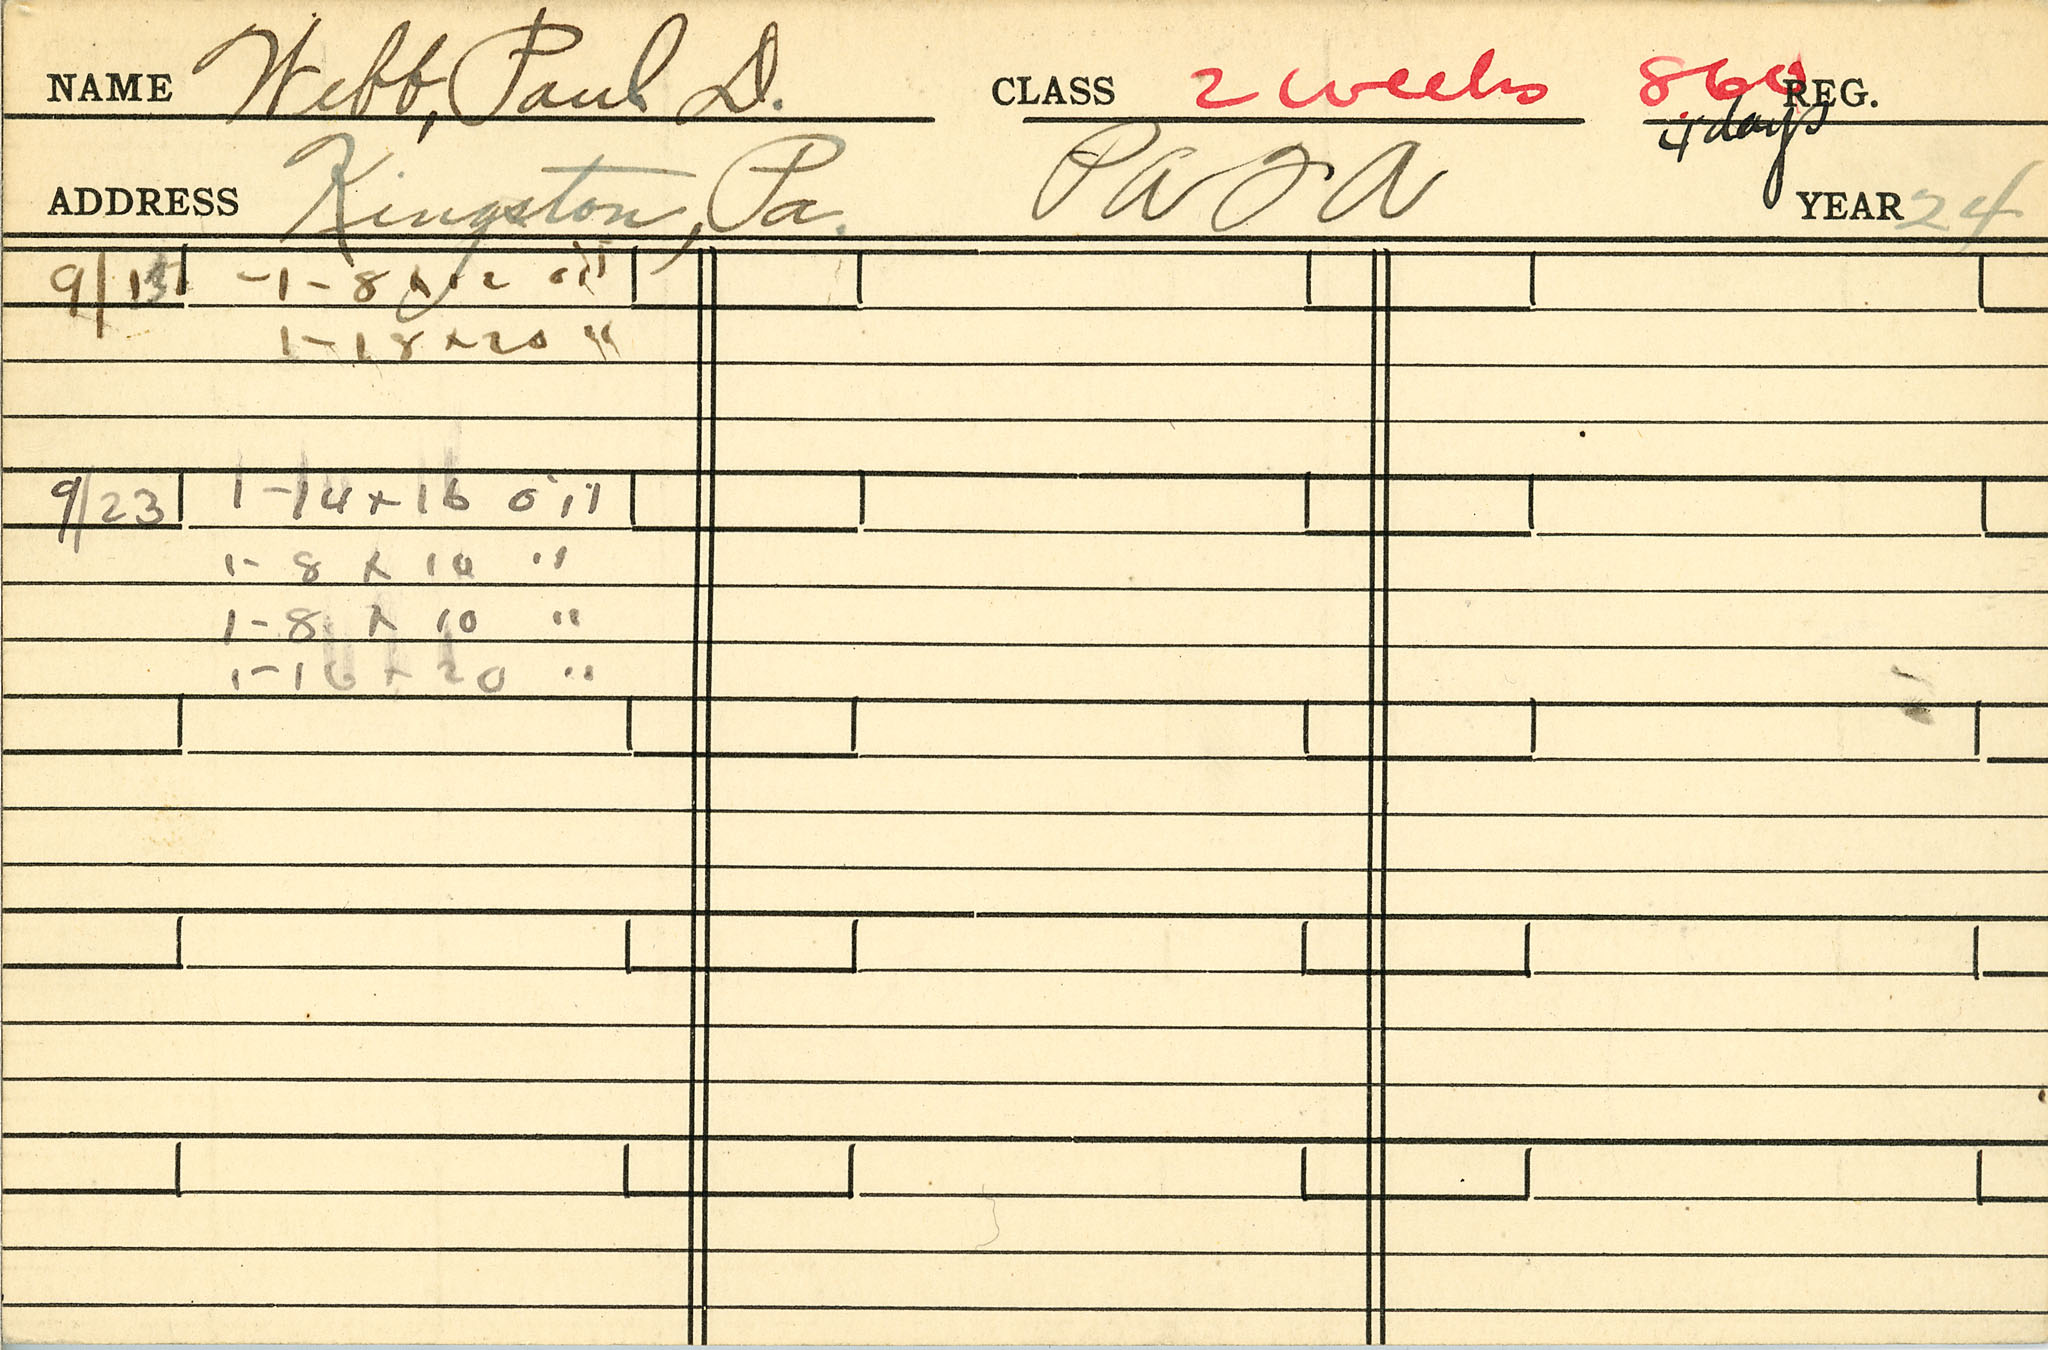 NAME Webb, Paul D. CLASS 2 weeks 860 REG.
4 days
ADDRESS Kingston, Pa. PAFA YEAR 24
9/15 -1-8 x 12 oil
1-18 x 20 "
9/23 1-14 x 16 oil
1-8 x 10 "
1-8 x 10 "
1-16 x 20 "